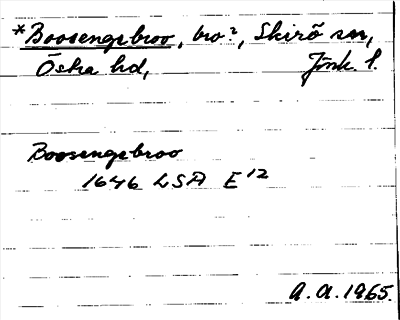 *Boosengebroo, bro?, Skirö sn,
Östra hd, Jönk. l.
Boosengebroo
1646 LSA E 12
A.A. 1965.